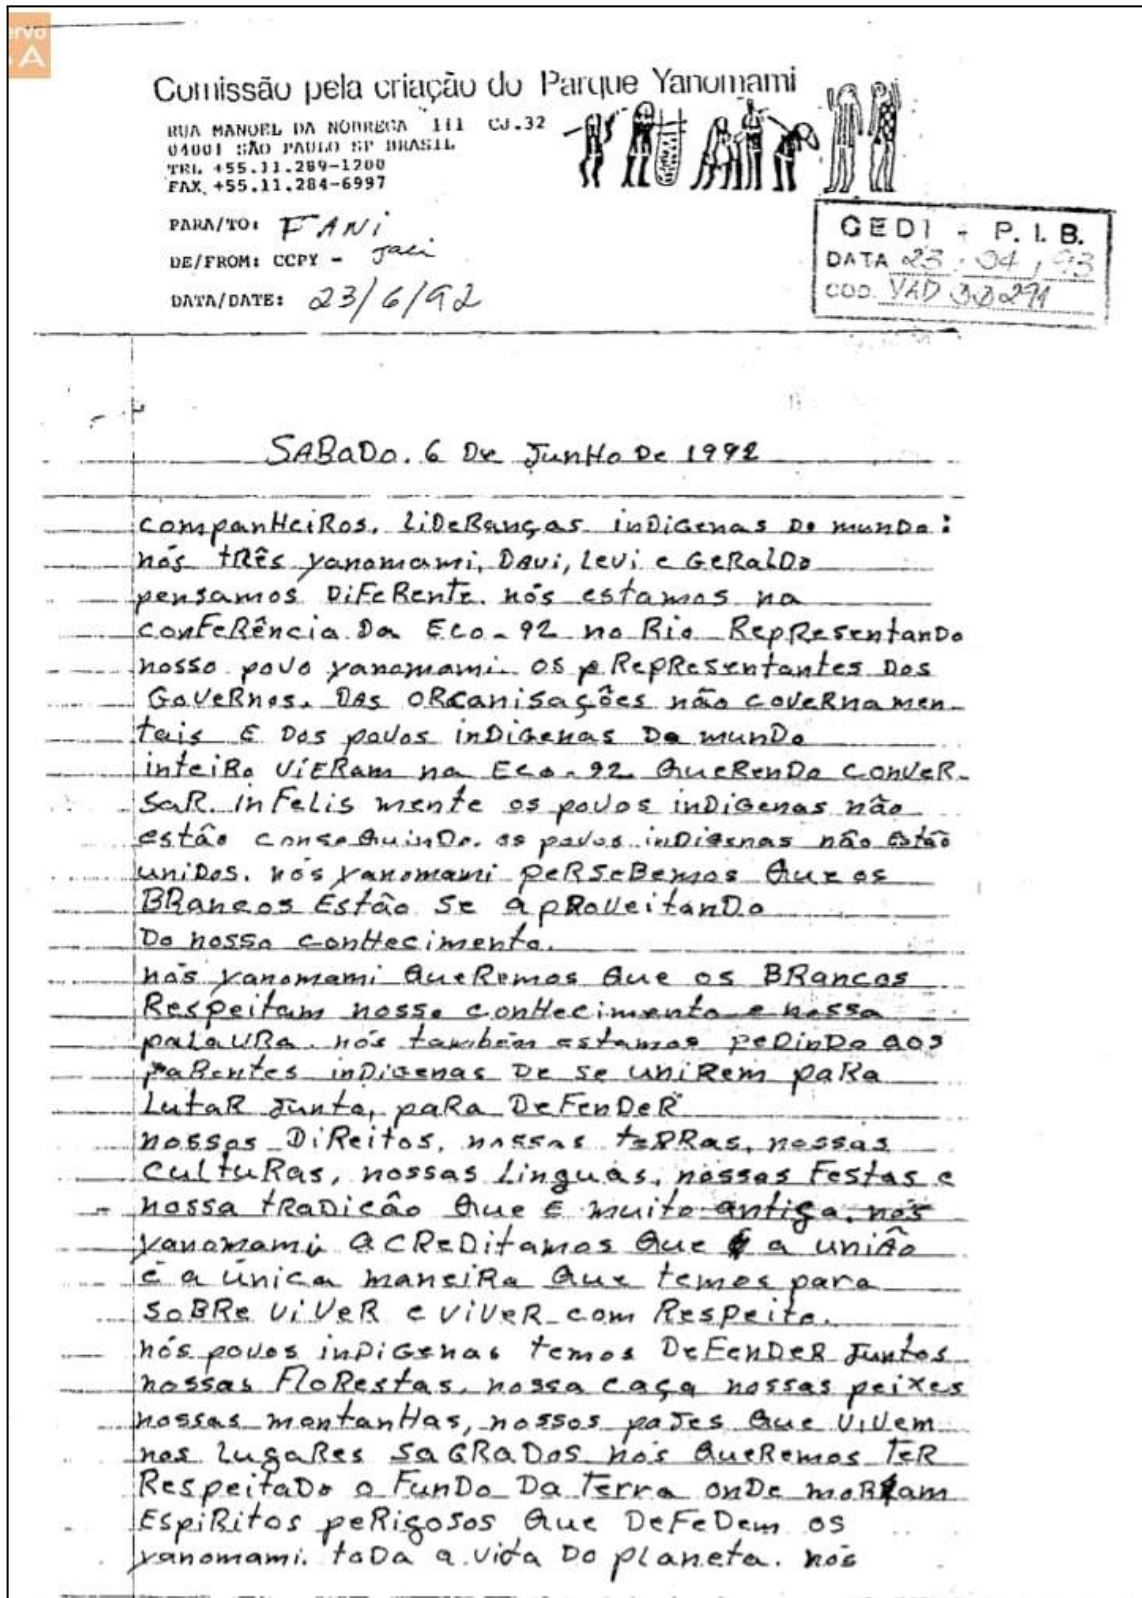 ervo
SA
Comissão pela criação do Parque Yanomami
RUA MANOEL DA NOBREGA 111 CJ.32
04001 SÃO PAULO SP BRASIL
TEL +55.11.289-1200
FAX +55.11.284-6997
PARA/TO: FANI
DE/FROM: CCPY - Jaci
DATA/DATE: 23/6/92
CEDI - P. I. B.
DATA 23 / 04 / 93
COD. YAD
SABaDo. 6 De JunHo De 1992
companHeiRos, LiDeRanças inDiGenas Do munDo:
nós tRês yanomami, Davi, Levi e GeRalDo
pensamos DiFeRente. nós estamos na
conFeRência Da Eco-92 no Rio RepResentanDo
nosso povo yanomami. os RepResentantes Dos
GoveRnos, DAs ORGanisações não GoveRnamen-
tais E Dos povos inDiGenas Do munDo
inteiRo viERam na Eco-92 QueRenDo conveR-
saR. inFelis mente os povos inDiGenas não
estão conseGuinDo. os povos inDiGenas não Estão
uniDos. nós yanomami peRseBemos Que os
BRancos Estão se apRoveitanDo
Do nosso conHecimento.
nós yanomami QueRemos Que os BRancos
Respeitam nosso conHecimento e nossa
palavRa. nós também estamos peDinDo aos
paRentes inDiGenas De se uniRem paRa
LutaR Junto, paRa DeFenDeR
nossos DiReitos, nossas teRRas, nossas
cultuRas, nossas Linguas, nossas Festas e
nossa tRaDicão Que E muito antiga. nós
yanomami acReDitamos Que a união
é a única maneiRa Que temos para
soBRe viveR e viveR com Respeito.
nós povos inDiGenas temos DeFenDeR Juntos
nossas FloRestas, nossa caça nossas peixes
nossas montanHas, nossos paJes Que vivem
nos LugaRes SaGRaDos nós QueRemos teR
RespeitaDo o FunDo Da Terra onDe moRam
EspiRitos peRigosos Que DeFeDem os
yanomami. toDa a vida Do planeta. nós